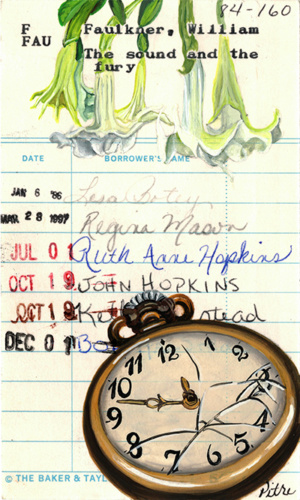 84-160
F Faulkner, William
FAU The sound and the
fury
DATE BORROWER'S NAME
JAN 6 '86 Lesa
MAR 28 1987 Regina Mason
JUL 01 Ruth Anne Hopkins
OCT 19 JOHN HOPKINS
OCT 19
DEC 01
12
1
2
3
4
5
6
7
8
9
10
11
© THE BAKER & TAYL
Pitre